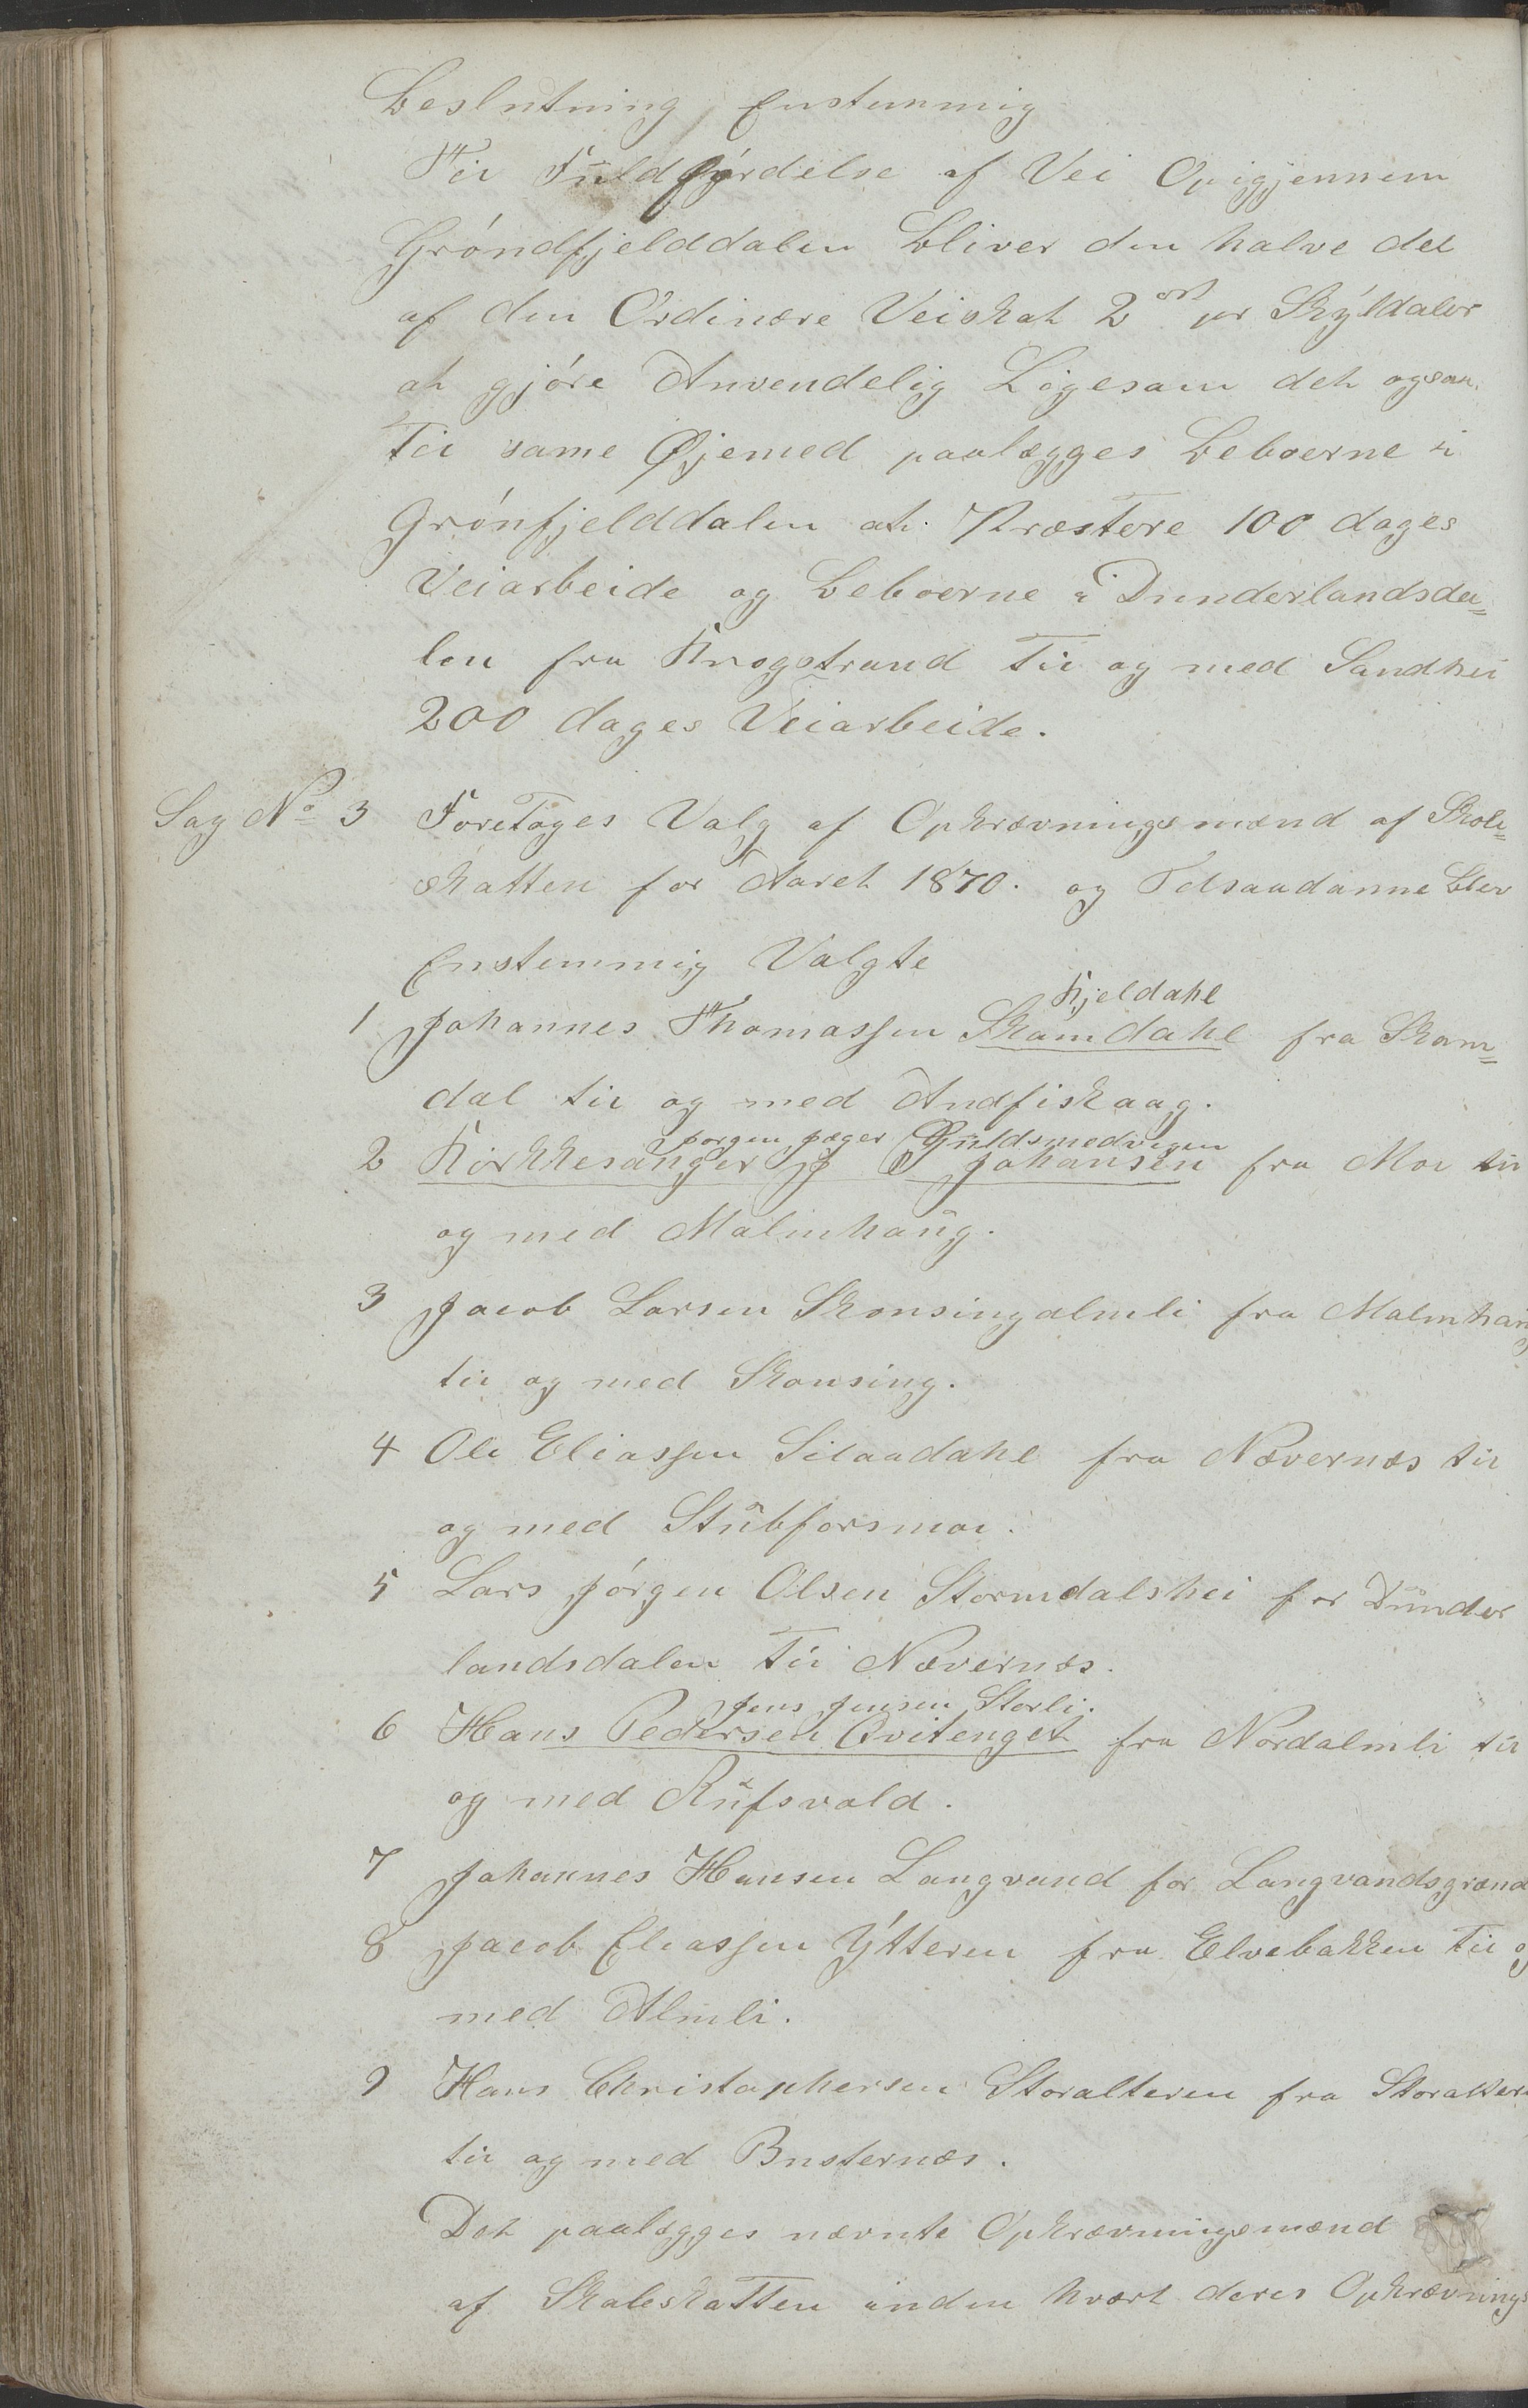 Beslutning, Enstemmig
Til Fuldfýrdelse af Vei Opigjennem
Gróndfjelddalen bliver den halve del
af den Ordinære Veiskat 2 ort pr Skýldaler
at gjóre Anvendelig Ligesom det ogsaa
til same Øjemed paalægges beboerne i
Grónfjelddalen at Præstere 100 dages
Veiarbeide og beboerne i Dunderlandsda=
len fra Krogstrand til og med Sandhei
200 dages Veiarbeide.
Sag No 3 Foretoges Valg af Opkrævningsmænd af Skole=
skatten for Aaret 1870. og Tilsaadanne blev
Enstemmig Valgte
Kjeldahl
1 Johannes Thomassen Skamdahl fra Skam=
dal til og med Andfiskaag.
Jorgen Jæger Guldsmedvigen
2 Kirkkesanger J Johansen fra Moe til
og med Malmhaug.
3 Jacob Larsen Skonsingalmli fra Malmhaug
til og med Skonsing.
4 Ole Eliassen Silaadahl fra Nævernæs til
og med Stubforsmoe.
5 Lars Jórgen Olsen Stormdalshei for Dunder
landsdalen til Nævernæs.
Jens Jensen Storli.
6 Hans Pedersen Qvitenget fra Nordalmli til
og med Rufsvold.
7 Johannes Hansen Langvand for Langvandsgrænd
8 Jacob Eliassen Ýtteren fra Elvebakken til og
med Almli.
9 Hans Christophersen Storalteren fra Storalter
til og med Busternæs.
Det paalægges nævnte Opkrævningsmænd
af Skoleskatten inden hvært deres Opkrævnings